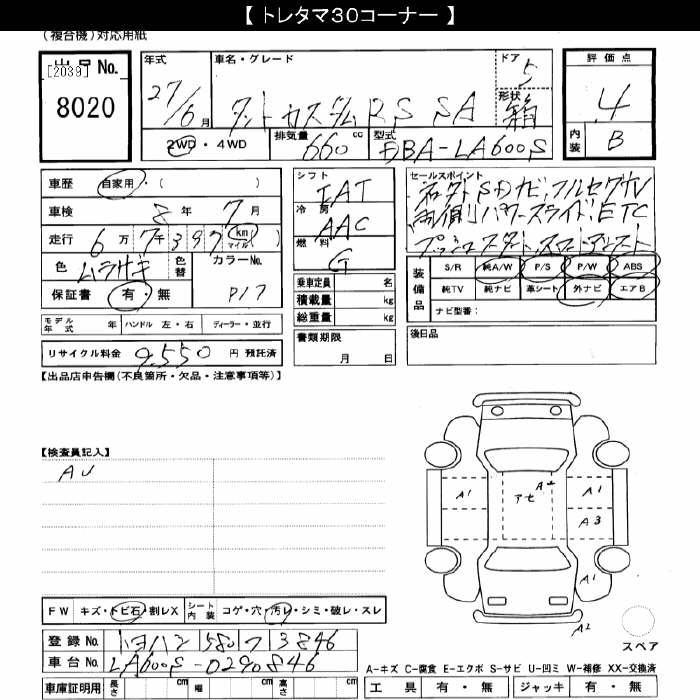 【 トレタマ３０コーナー 】
(複合機)対応用紙
出品No. [2039]
8020
年式 27/6月
車名・グレード タントカスタム RS SA
ドア 5
形状 箱
2WD・4WD
排気量 660 cc
型式 DBA-LA600S
評価点 4
内装 B
車歴 自家用・( )
車検 8年 7月
走行 6万7千397 (km) マイル
色 ムラサキ 色替 カラーNo. P17
保証書 有・無
シフト IAT
冷房 AAC
燃料 G
乗車定員 名
積載量 kg
総重量 kg
セールスポイント
SDナビ、フルセグTV
両側パワースライド、ETC
プッシュスタート、
装備品 S/R 純A/W P/S P/W ABS
純TV 純ナビ 革シート 外ナビ エアB
ナビ型番:
モデル年式 年 ハンドル 左・右 ディーラー・並行
リサイクル料金 9,550 円 預託済
書類期限 月 日
後日品
【出品店申告欄(不良箇所・欠品・注意事項等)】
【検査員記入】
AU
A1
アセ
A2
A1
A3
A1
A2
スペア
FW キズ・トビ石・割レX シート内装 コゲ・穴・汚レ・シミ・破レ・スレ
登録 No. トヨハシ 580 ワ 3846
車台 No. LA600S-0290846
車庫証明用 長さ cm 幅 cm 高さ cm
A-キズ C-腐食 E-エクボ S-サビ U-凹ミ W-補修 XX-交換済
工具 有・無 ジャッキ 有・無